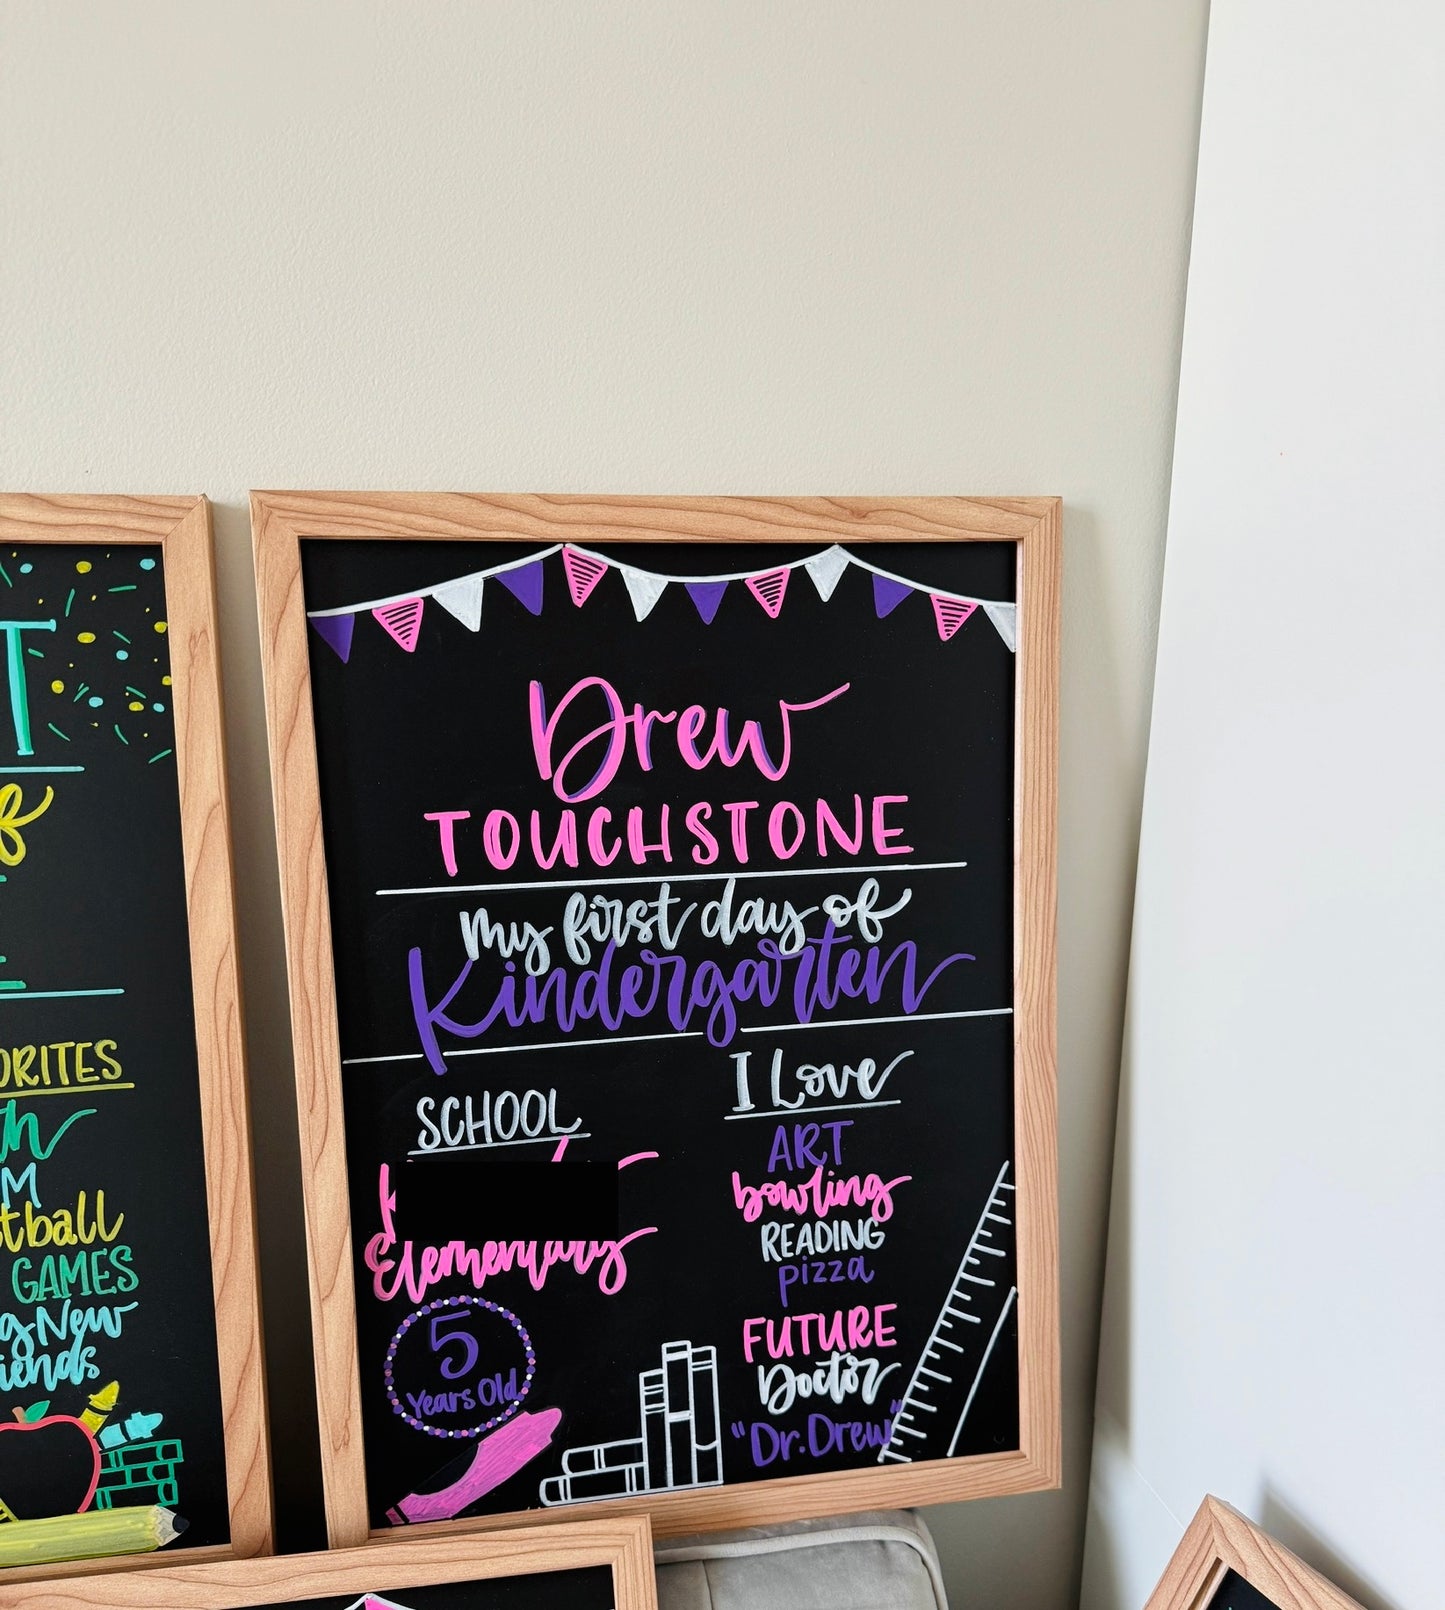 T
of
ORITES
M
tball
GAMES
g New
iends
Drew
TOUCHSTONE
my first day of
Kindergarten
SCHOOL
Elementary
5
Years Old
I Love
ART
bowling
READING
pizza
FUTURE
Doctor
"Dr. Drew"